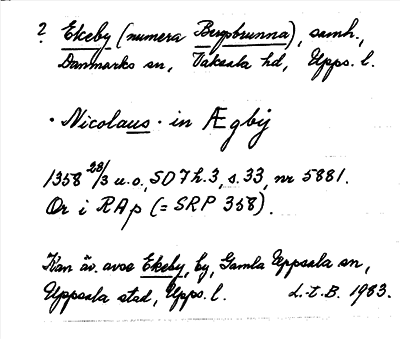 ? Ekeby (numera Bergsbrunna), samh.,
Danmarks sn, Vaksala hd, Upps. l.
· Nicolaus · in Ægbij
1358 28/3 u.o., SD 7 h.3, s.33, nr 5881.
Or i RAp (= SRP 358).
Kan äv. avse Ekeby, by, Gamla Uppsala sn,
Uppsala stad, Upps. l. L.t.B. 1983.